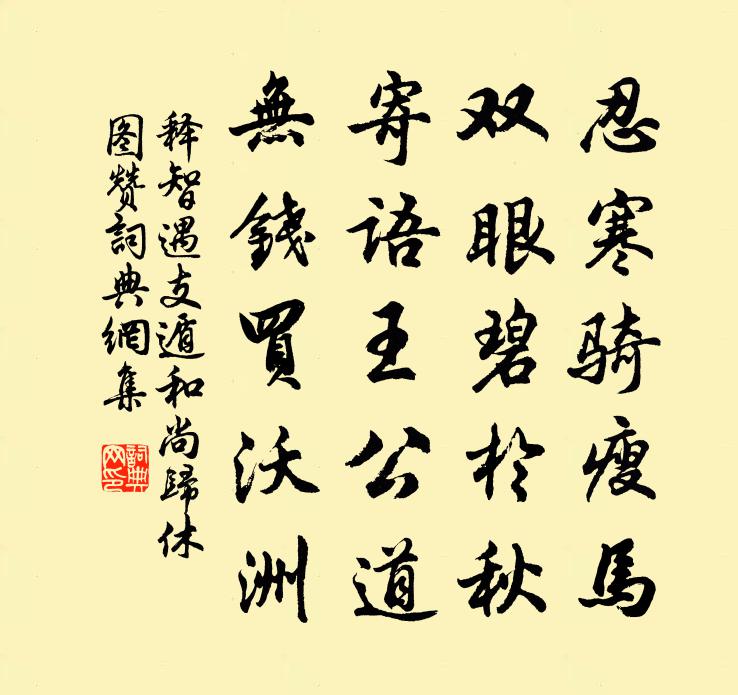 忍寒骑瘦馬
双眼碧於秋
寄语王公道
無錢買沃洲
释智遇支遁和尚歸休
图赞詞典網集
詞典网印